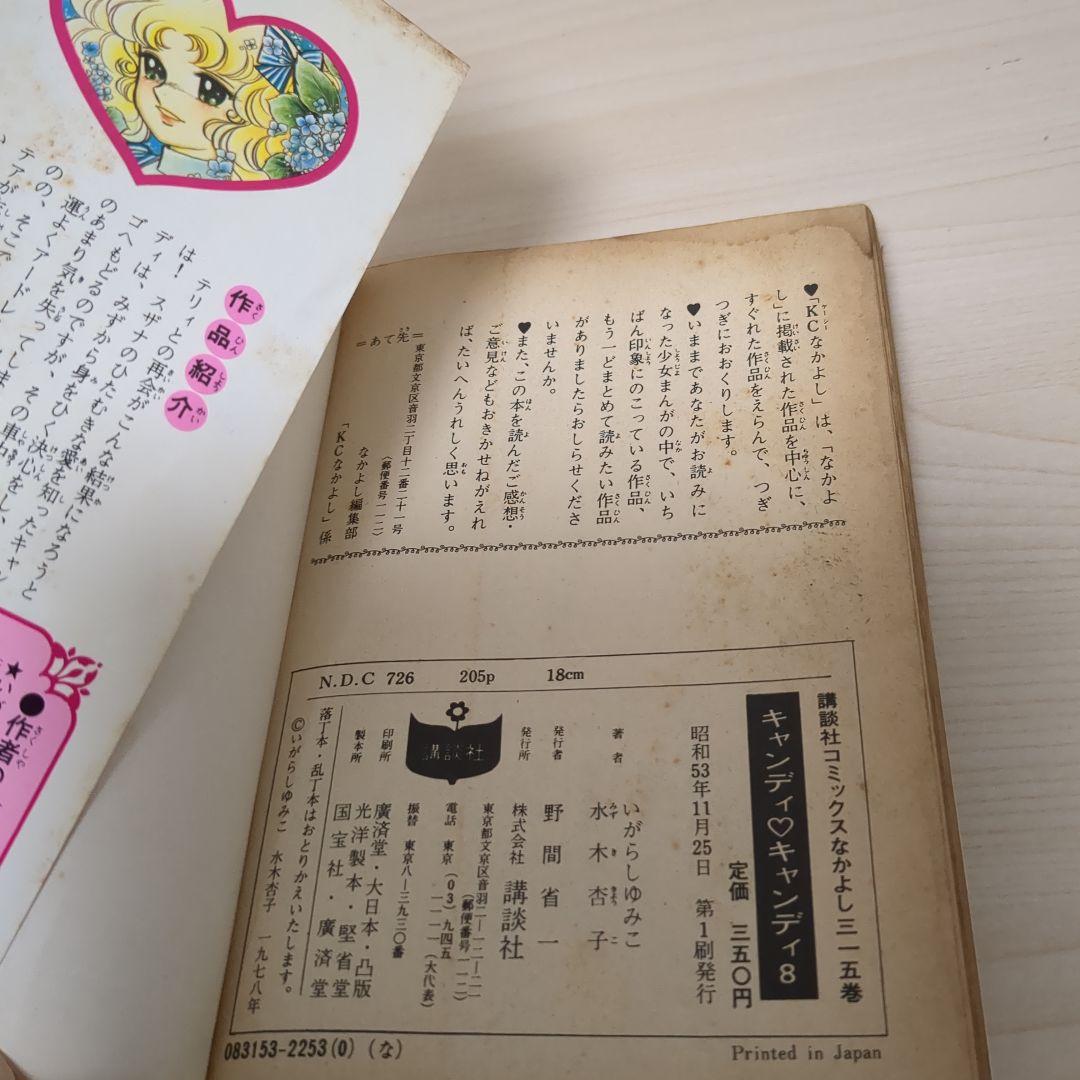 作品紹介
テリィとの再会がこんな結果になろうと
は！
ディは、スザナのひたむきな愛を知ったキャン
ゴへもどるのですが、
のあまり気を失ってしま
運よくアードレ
のの、そこで
テアが
●作者の
♥「KCなかよし」は、「なかよ
し」に掲載された作品を中心に、
すぐれた作品をえらんで、つぎ
つぎにおおくりします。
♥いままであなたがお読みに
なった少女まんがの中で、いち
ばん印象にのこっている作品、
もう一どまとめて読みたい作品
がありましたらおしらせくださ
いませんか。
♥また、この本を読んだご感想・
ご意見などもおきかせねがえれ
ば、たいへんうれしく思います。
＝あて先＝
東京都文京区音羽二丁目十二番二十一号
（郵便番号一一二）
なかよし編集部
「KCなかよし」係
N.D.C 726 205p 18cm
講談社コミックスなかよし 三一五巻
キャンディ♡キャンディ8
定価 三五〇円
昭和53年11月25日 第1刷発行
著者 いがらしゆみこ
水木杏子
発行者 野間省一
発行所 株式会社 講談社
東京都文京区音羽二ー一二ー二一
（郵便番号一一二）
電話 東京（03）九四五
一一一一（大代表）
振替 東京八ー三九三〇番
講談社
印刷所 廣済堂・大日本・凸版
製本所 光洋製本・堅省堂
国宝社・廣済堂
落丁本・乱丁本はおとりかえいたします。
©いがらしゆみこ 水木杏子 一九七八年
083153-2253(0)（な）
Printed in Japan